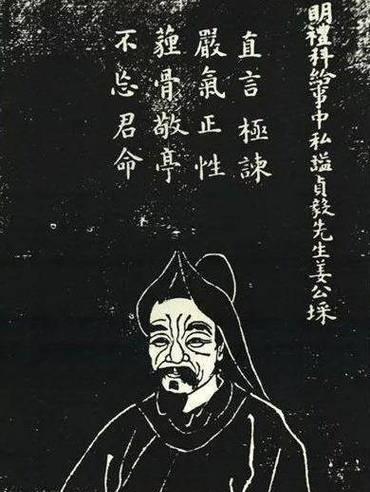 明禮科給事中私謚貞毅先生姜公埰
直言極諫
嚴氣正性
薶骨敬亭
不忘君命